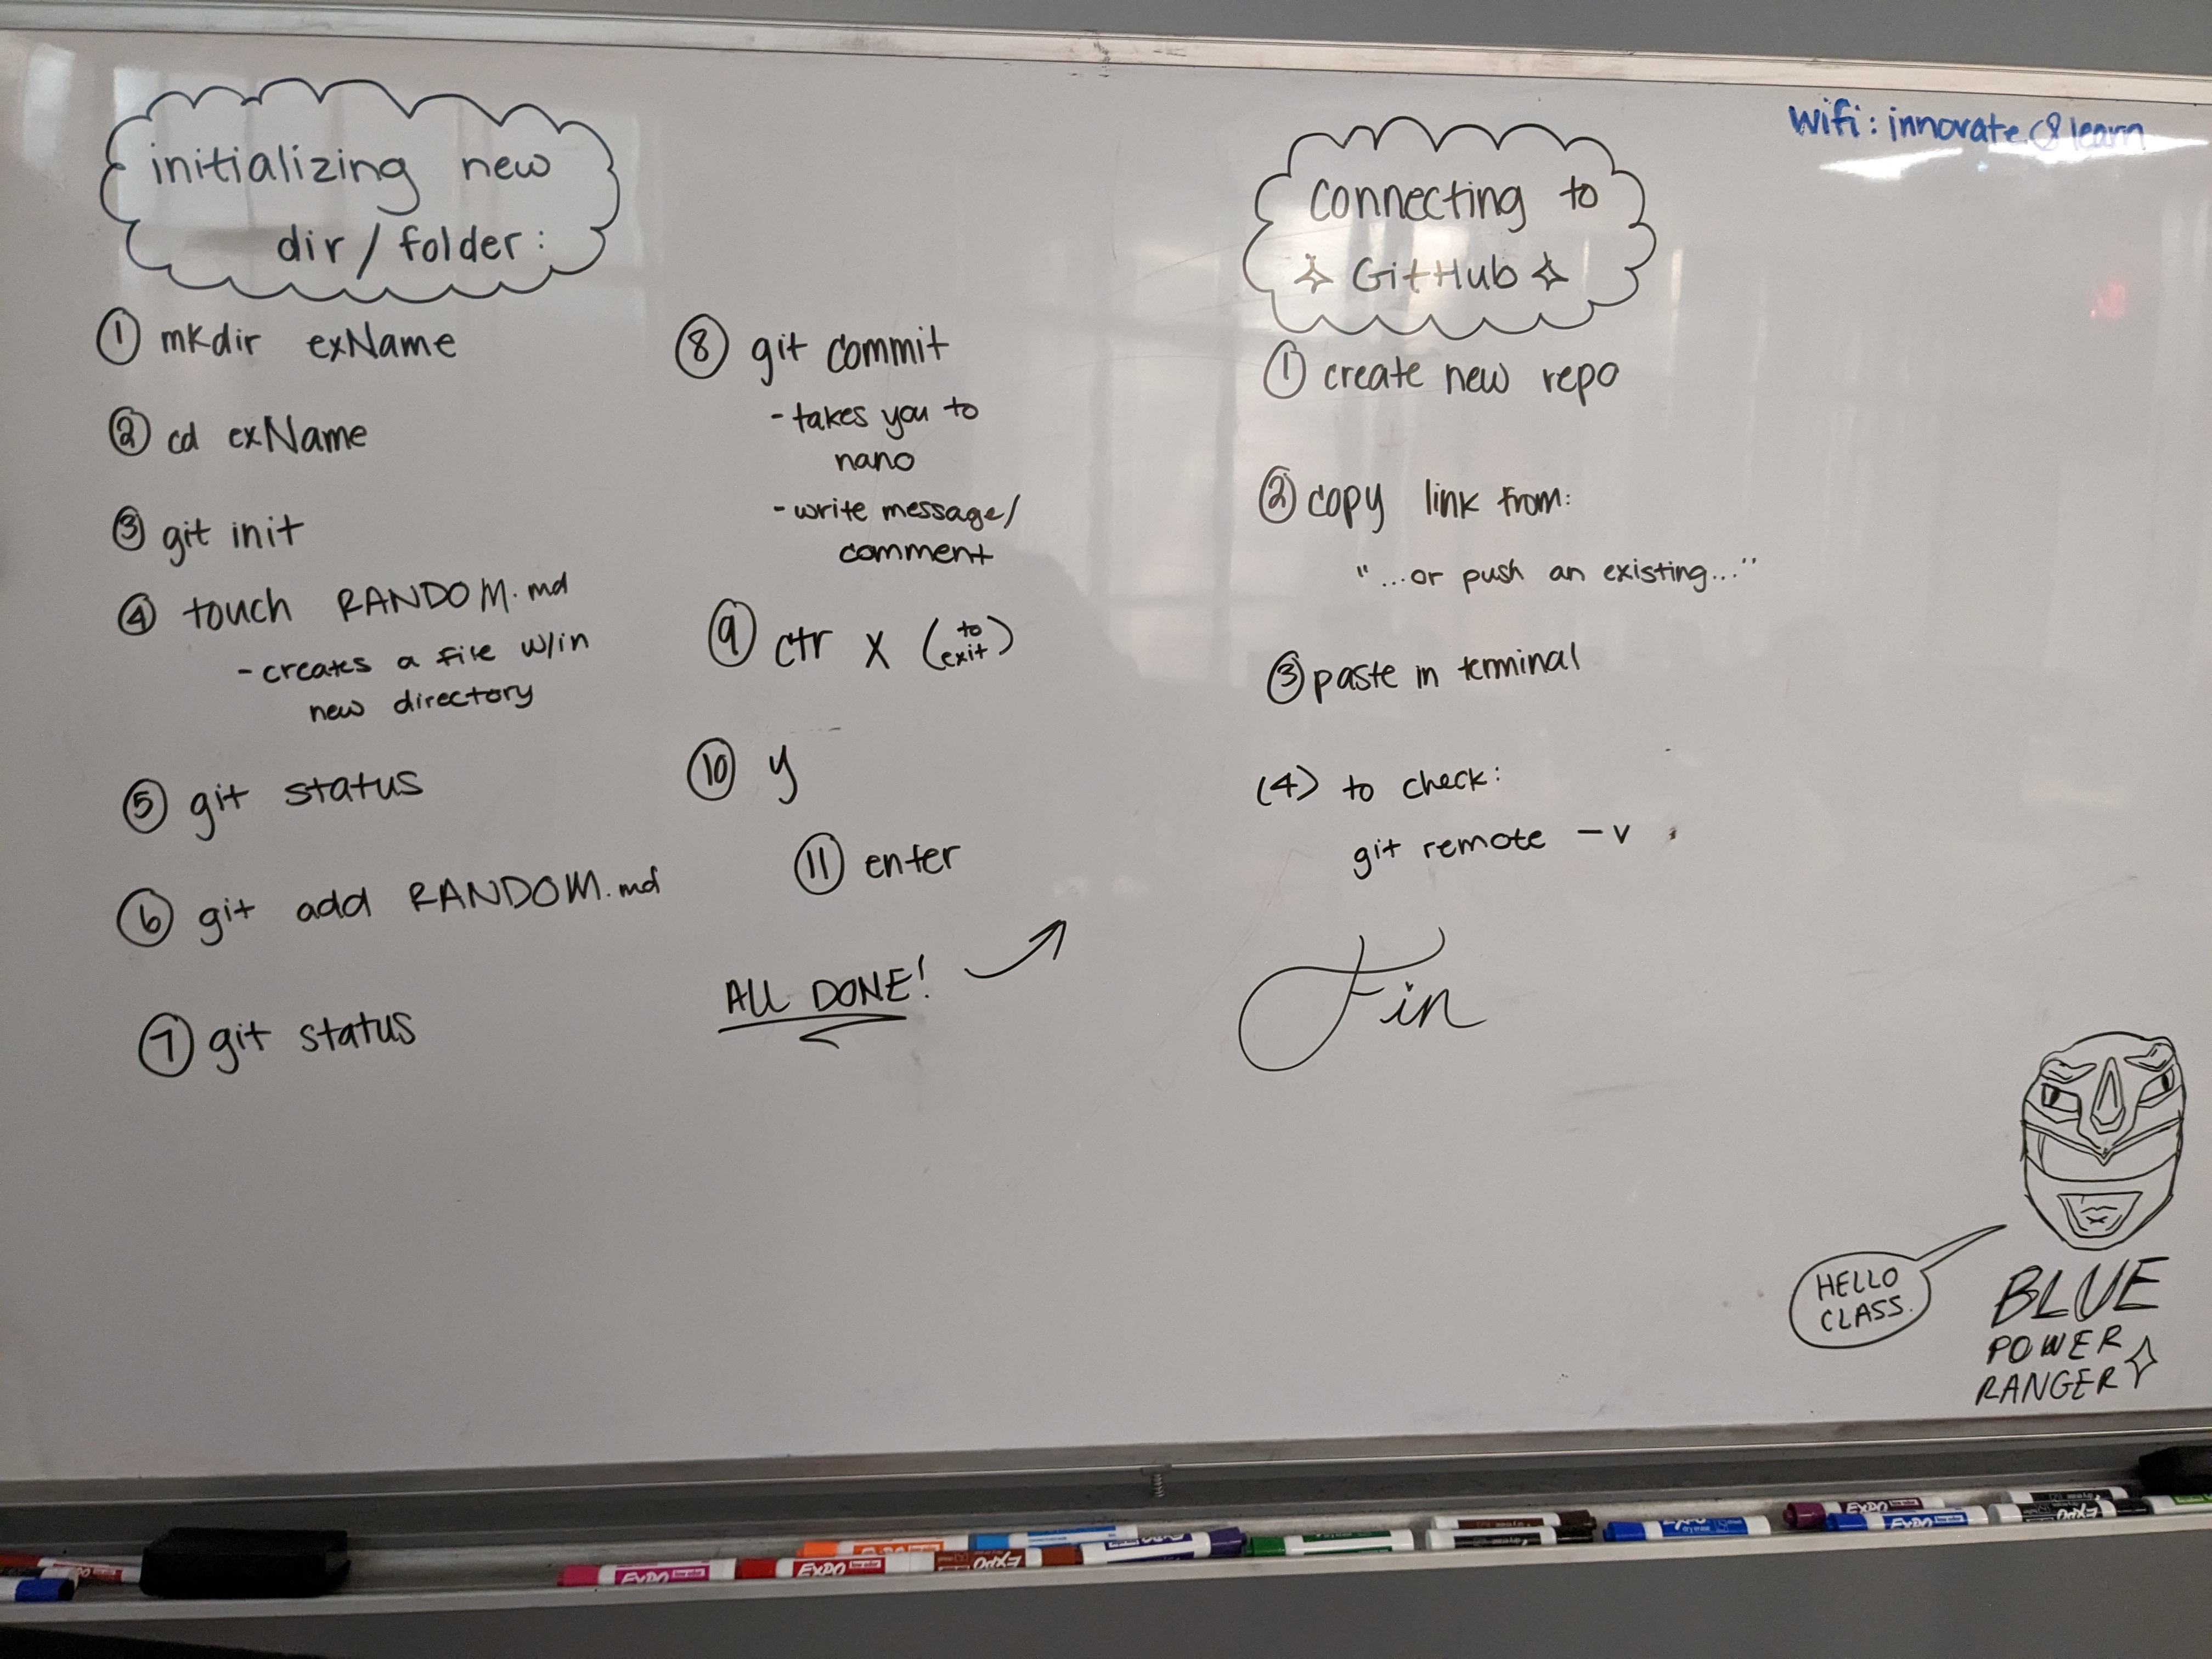 wifi: innovate&learn
initializing new
dir / folder:
① mkdir exName
② cd exName
③ git init
④ touch RANDOM.md
- creates a file w/in
new directory
⑤ git status
⑥ git add RANDOM.md
⑦ git status
⑧ git commit
- takes you to
nano
- write message/
comment
⑨ ctr X (to exit)
⑩ y
⑪ enter
ALL DONE!
connecting to
GitHub
① create new repo
② copy link from:
"...or push an existing..."
③ paste in terminal
(4) to check:
git remote -v
Fin
HELLO
CLASS.
BLUE
POWER
RANGER
EXPO
EXPO
EXPO
EXPO
EXPO
EXPO
EXPO